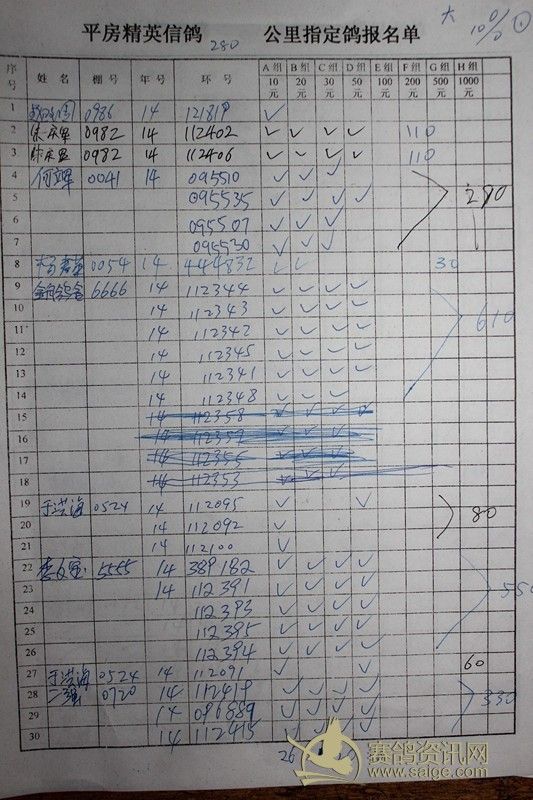 大 10% ①
平房精英信鸽 280 公里指定鸽报名单
序号 姓 名 棚 号 年 号 环 号 A组 10元 B组 20元 C组 30元 D组 50元 E组 100元 F组 200元 G组 500元 H组 1000元
1 0986 14 121819 ✓
2 0982 14 112402 ✓ ✓ ✓ ✓ 110
3 0982 14 112406 ✓ ✓ ✓ ✓ 110
4 0041 14 095510 ✓ ✓ ✓
5 095535 ✓ ✓ ✓ ✓ 290
6 095507 ✓ ✓ ✓
7 095530 ✓ ✓ ✓
8 0054 14 444832 ✓ ✓ 30
9 6666 14 112344 ✓ ✓ ✓ ✓
10 14 112343 ✓ ✓ ✓ ✓
11 14 112342 ✓ ✓ ✓ ✓ 610
12 14 112345 ✓ ✓ ✓ ✓
13 14 112341 ✓ ✓ ✓ ✓
14 14 112348 ✓ ✓ ✓
15 14 112358 ✓ ✓ ✓ ✓
16 14 ✓ ✓ ✓ ✓
17 14 112355 ✓ ✓ ✓
18 14 112353 ✓ ✓ ✓
19 于洪海 0524 14 112095 ✓ ✓
20 14 112092 ✓ 80
21 14 112100 ✓
22 5555 14 389182 ✓ ✓ ✓ ✓
23 14 112391 ✓ ✓ ✓ ✓
24 112393 ✓ ✓ ✓ ✓ 550
25 112395 ✓ ✓ ✓ ✓
26 112394 ✓ ✓ ✓ ✓
27 于洪海 0524 14 112091 ✓ ✓ 60
28 二强 0720 14 112419 ✓ ✓ ✓ ✓
29 14 096889 ✓ ✓ ✓ ✓ 330
30 14 112415 ✓ ✓ ✓ ✓
26
赛鸽资讯网
www.saige.com